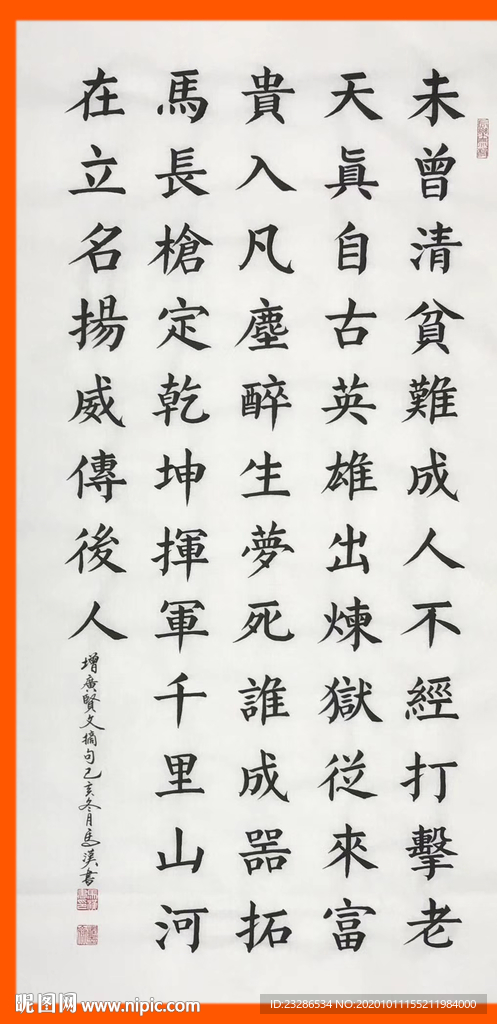 未曾清貧難成人不經打擊老
天眞自古英雄出煉獄從來富
貴入凡塵醉生夢死誰成器拓
馬長槍定乾坤揮軍千里山河
在立名揚威傳後人
增廣賢文摘句己亥冬月馬漢書
昵图网 www.nipic.com
ID:23286534 NO:20201011155211984000